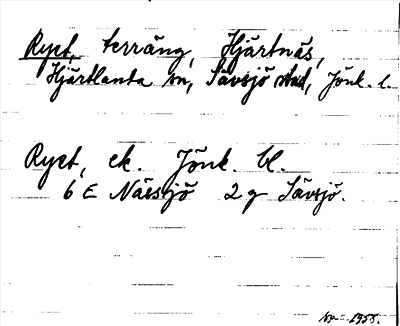 Ryet, terräng, Hjärtnäs,
Hjärtlanda sn, Sävsjö stad, Jönk. l.
Ryet, ek. Jönk. bl.
6 E Nässjö 2 g Sävsjö.
1955.